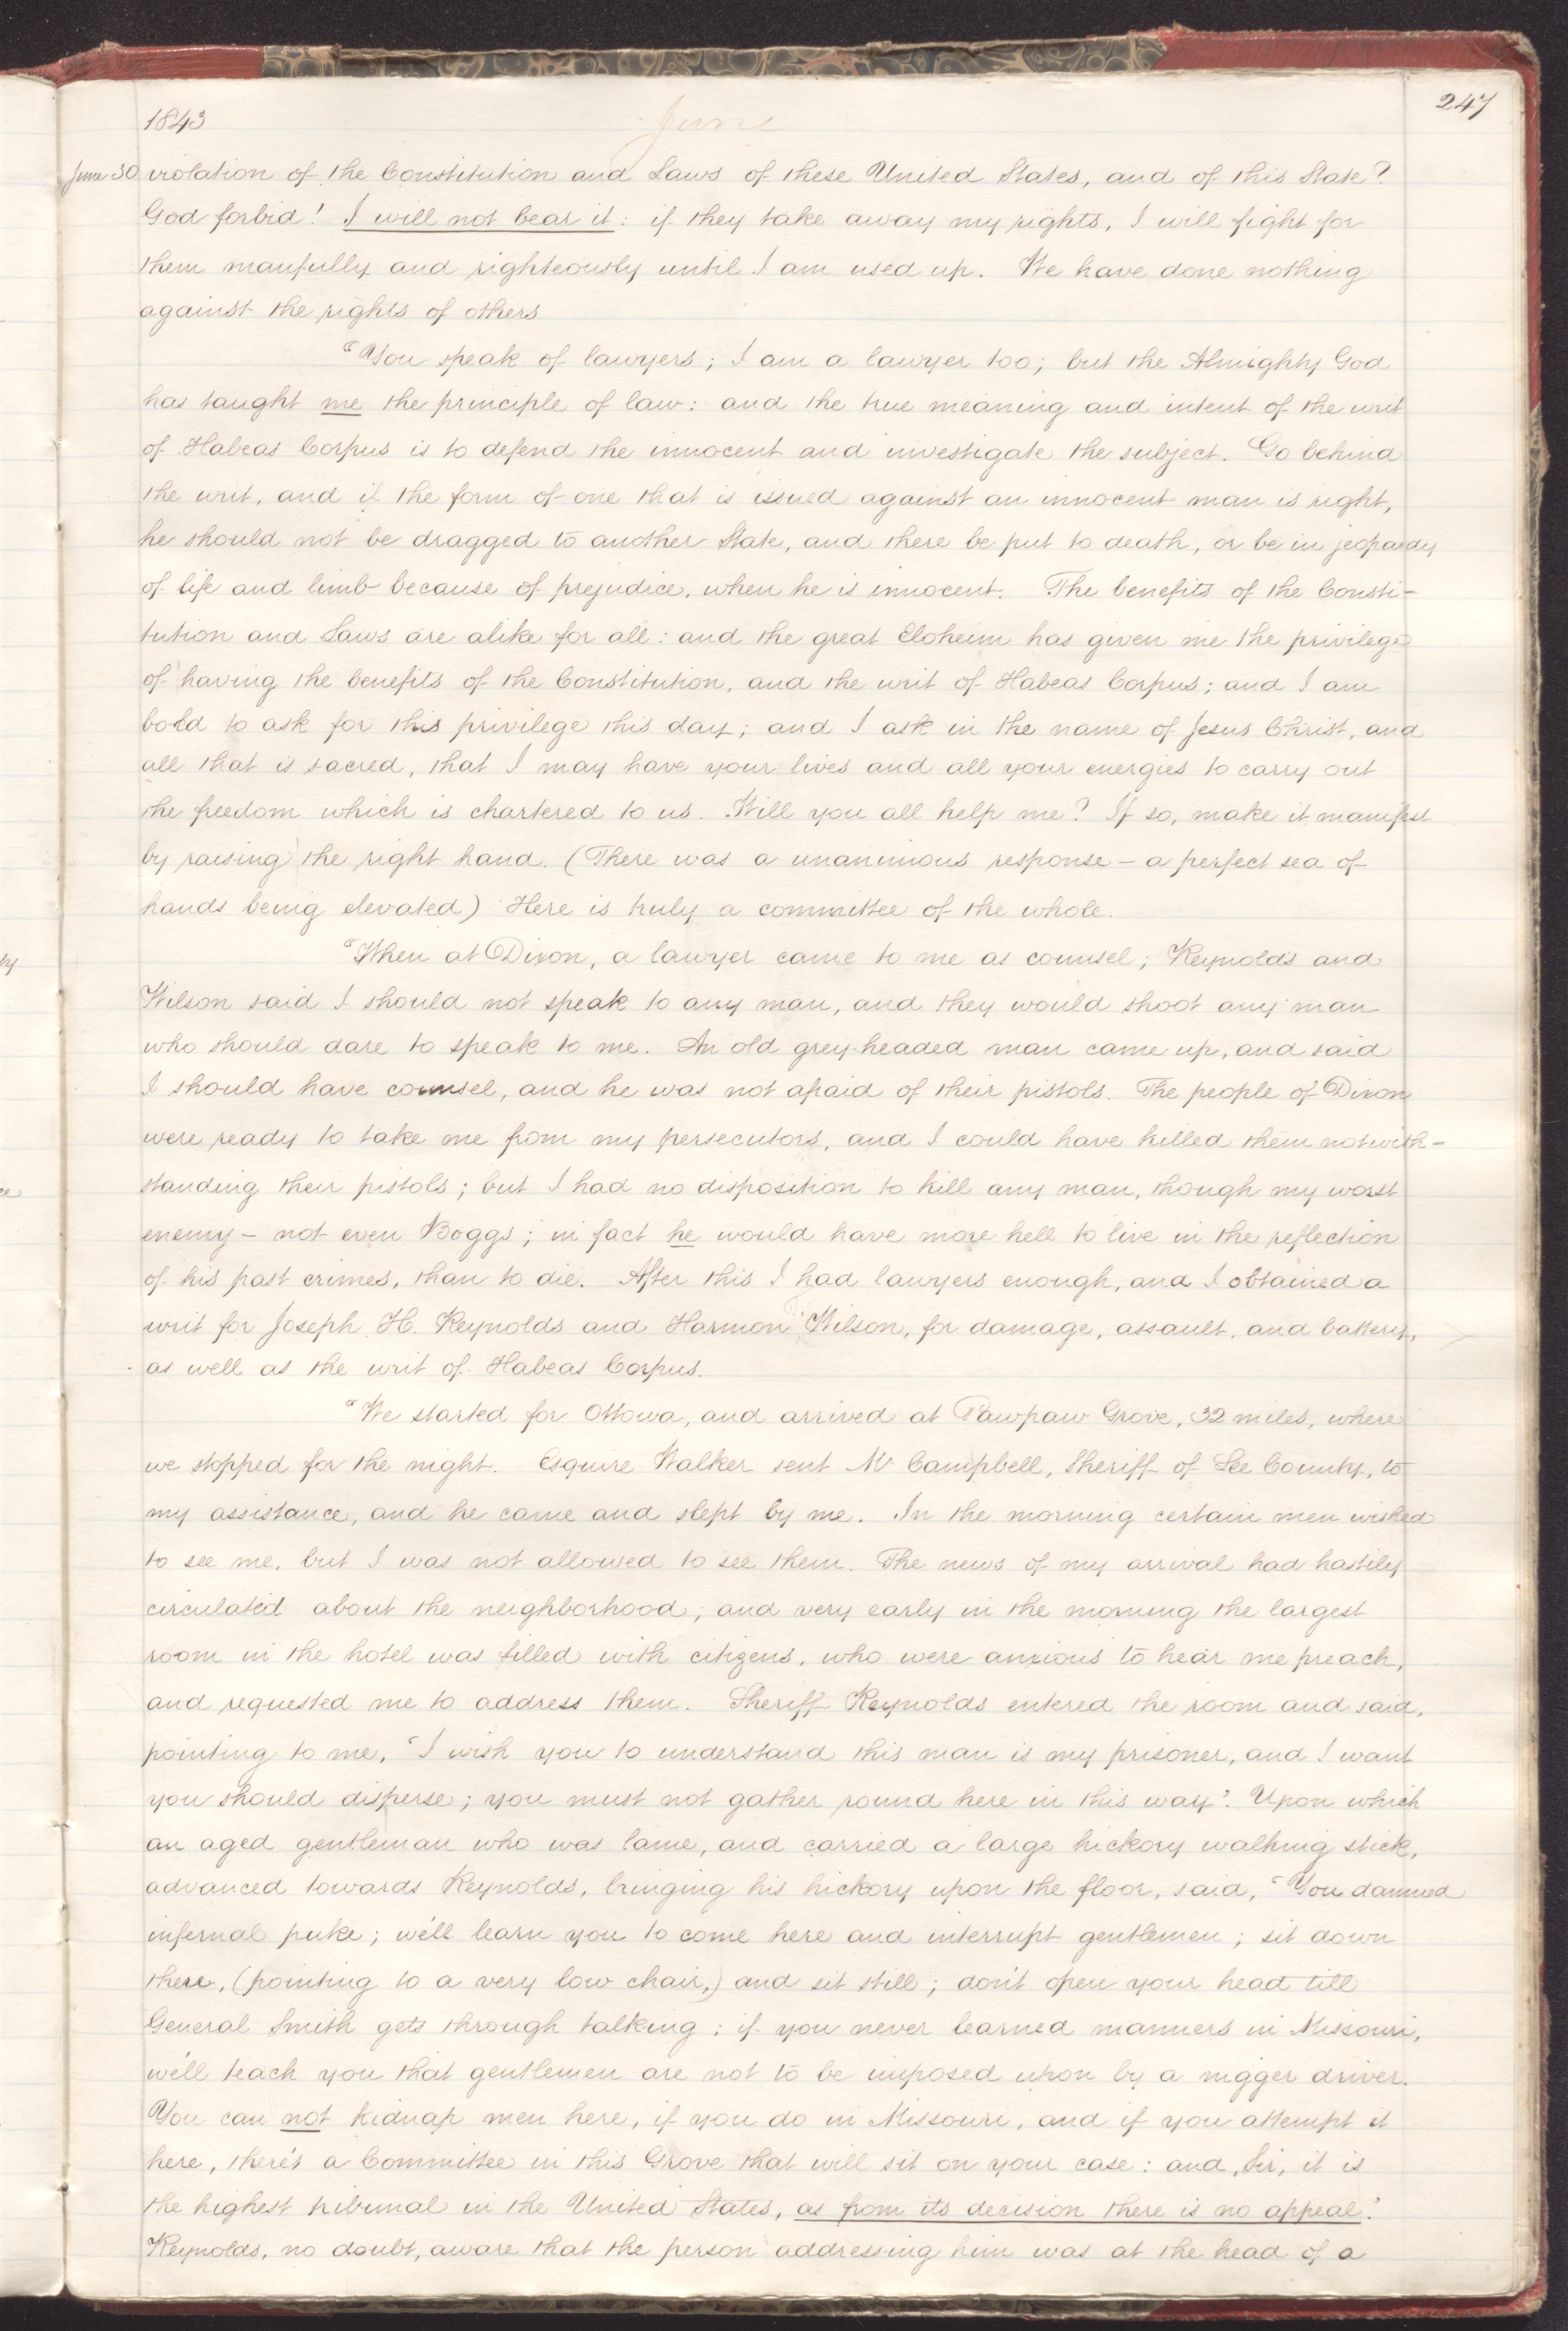 247
1843
June
June 30 violation of the Constitution and Laws of these United States, and of this State?
God forbid! I will not bear it: if they take away my rights, I will fight for
them manfully and righteously until I am used up. We have done nothing
against the rights of others
"You speak of lawyers; I am a lawyer too; but the Almighty God
has taught me the principle of law: and the true meaning and intent of the writ
of Habeas Corpus is to defend the innocent and investigate the subject. Go behind
the writ, and if the form of one that is issued against an innocent man is right,
he should not be dragged to another State, and there be put to death, or be in jeopardy
of life and limb because of prejudice, when he is innocent. The benefits of the Consti-
tution and Laws are alike for all: and the great Eloheim has given me the privilege
of having the benefits of the Constitution, and the writ of Habeas Corpus; and I am
bold to ask for this privilege this day; and I ask in the name of Jesus Christ, and
all that is sacred, that I may have your lives and all your energies to carry out
the freedom which is chartered to us. Will you all help me? If so, make it manifest
by raising the right hand. (There was a unanimous response – a perfect sea of
hands being elevated) Here is truly a committee of the whole.
"When at Dixon, a lawyer came to me as counsel; Reynolds and
Wilson said I should not speak to any man, and they would shoot any man
who should dare to speak to me. An old grey-headed man came up, and said
I should have counsel, and he was not afraid of their pistols. The people of Dixon
were ready to take me from my persecutors, and I could have killed them notwith-
standing their pistols; but I had no disposition to kill any man, though my worst
enemy – not even Boggs; in fact he would have more hell to live in the reflection
of his past crimes, than to die. After this I had lawyers enough, and I obtained a
writ for Joseph H. Reynolds and Harmon Wilson, for damage, assault, and battery,
as well as the writ of Habeas Corpus.
"We started for Ottowa, and arrived at Pawpaw Grove, 32 miles, where
we stopped for the night. Esquire Walker sent Mr Campbell, Sheriff of Lee County, to
my assistance, and he came and slept by me. In the morning certain men wished
to see me, but I was not allowed to see them. The news of my arrival had hastily
circulated about the neighborhood; and very early in the morning the largest
room in the hotel was filled with citizens, who were anxious to hear me preach,
and requested me to address them. Sheriff Reynolds entered the room and said,
pointing to me, 'I wish you to understand this man is my prisoner, and I want
you should disperse; you must not gather round here in this way'. Upon which
an aged gentleman who was lame, and carried a large hickory walking stick,
advanced towards Reynolds, bringing his hickory upon the floor, said, 'You damned
infernal puke; we'll learn you to come here and interrupt gentlemen; sit down
there, (pointing to a very low chair,) and sit still; don't open your head till
General Smith gets through talking; if you never learned manners in Missouri,
we'll teach you that gentlemen are not to be imposed upon by a nigger driver.
You can not kidnap men here, if you do in Missouri, and if you attempt it
here, there's a Committee in this Grove that will sit on your case: and, Sir, it is
the highest tribunal in the United States, as from its decision there is no appeal.'
Reynolds, no doubt, aware that the person addressing him was at the head of a